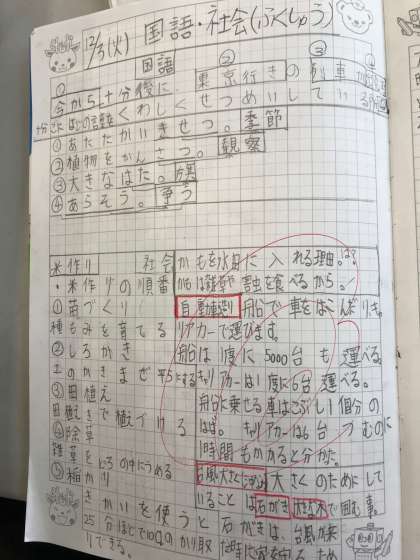 12/3(火) 国語・社会(ふくしゅう)
国語
① ② ③ ④
今から十分後に、東京行きの列車が
くわしくせつめいしている
①あたたかいきせつ。季節
②植物をかんさつ。観察
③大きなはた。旗
④あらそう。争う
米作り
・米作りの順番
①苗づくり
種もみを育てる
②しろかき
土のかきまぜ平らにする
③田植え
田植えきで植えつける
④除草
雑草をしろの中にうめる
⑤稲かり
きかいを使うと
25分ほどで10aのかり取
りできる。
社会
かもを水田に入れる理由は?
かもは雑草や害虫を食べるから。
自動車造り 船で車をはこんだりキャ
リアカーで運びます。
船は1度に5000台も運べる。
キャリアカーは1度に6台運べる。
船に乗せる車はこぶし1個分の
はば。キャリアカーは6台つむのに
1時間もかかると分かった。
大さくのためにして
いることは石がきや木で囲む事。
石がきは、台風が来
た時に家を守るため